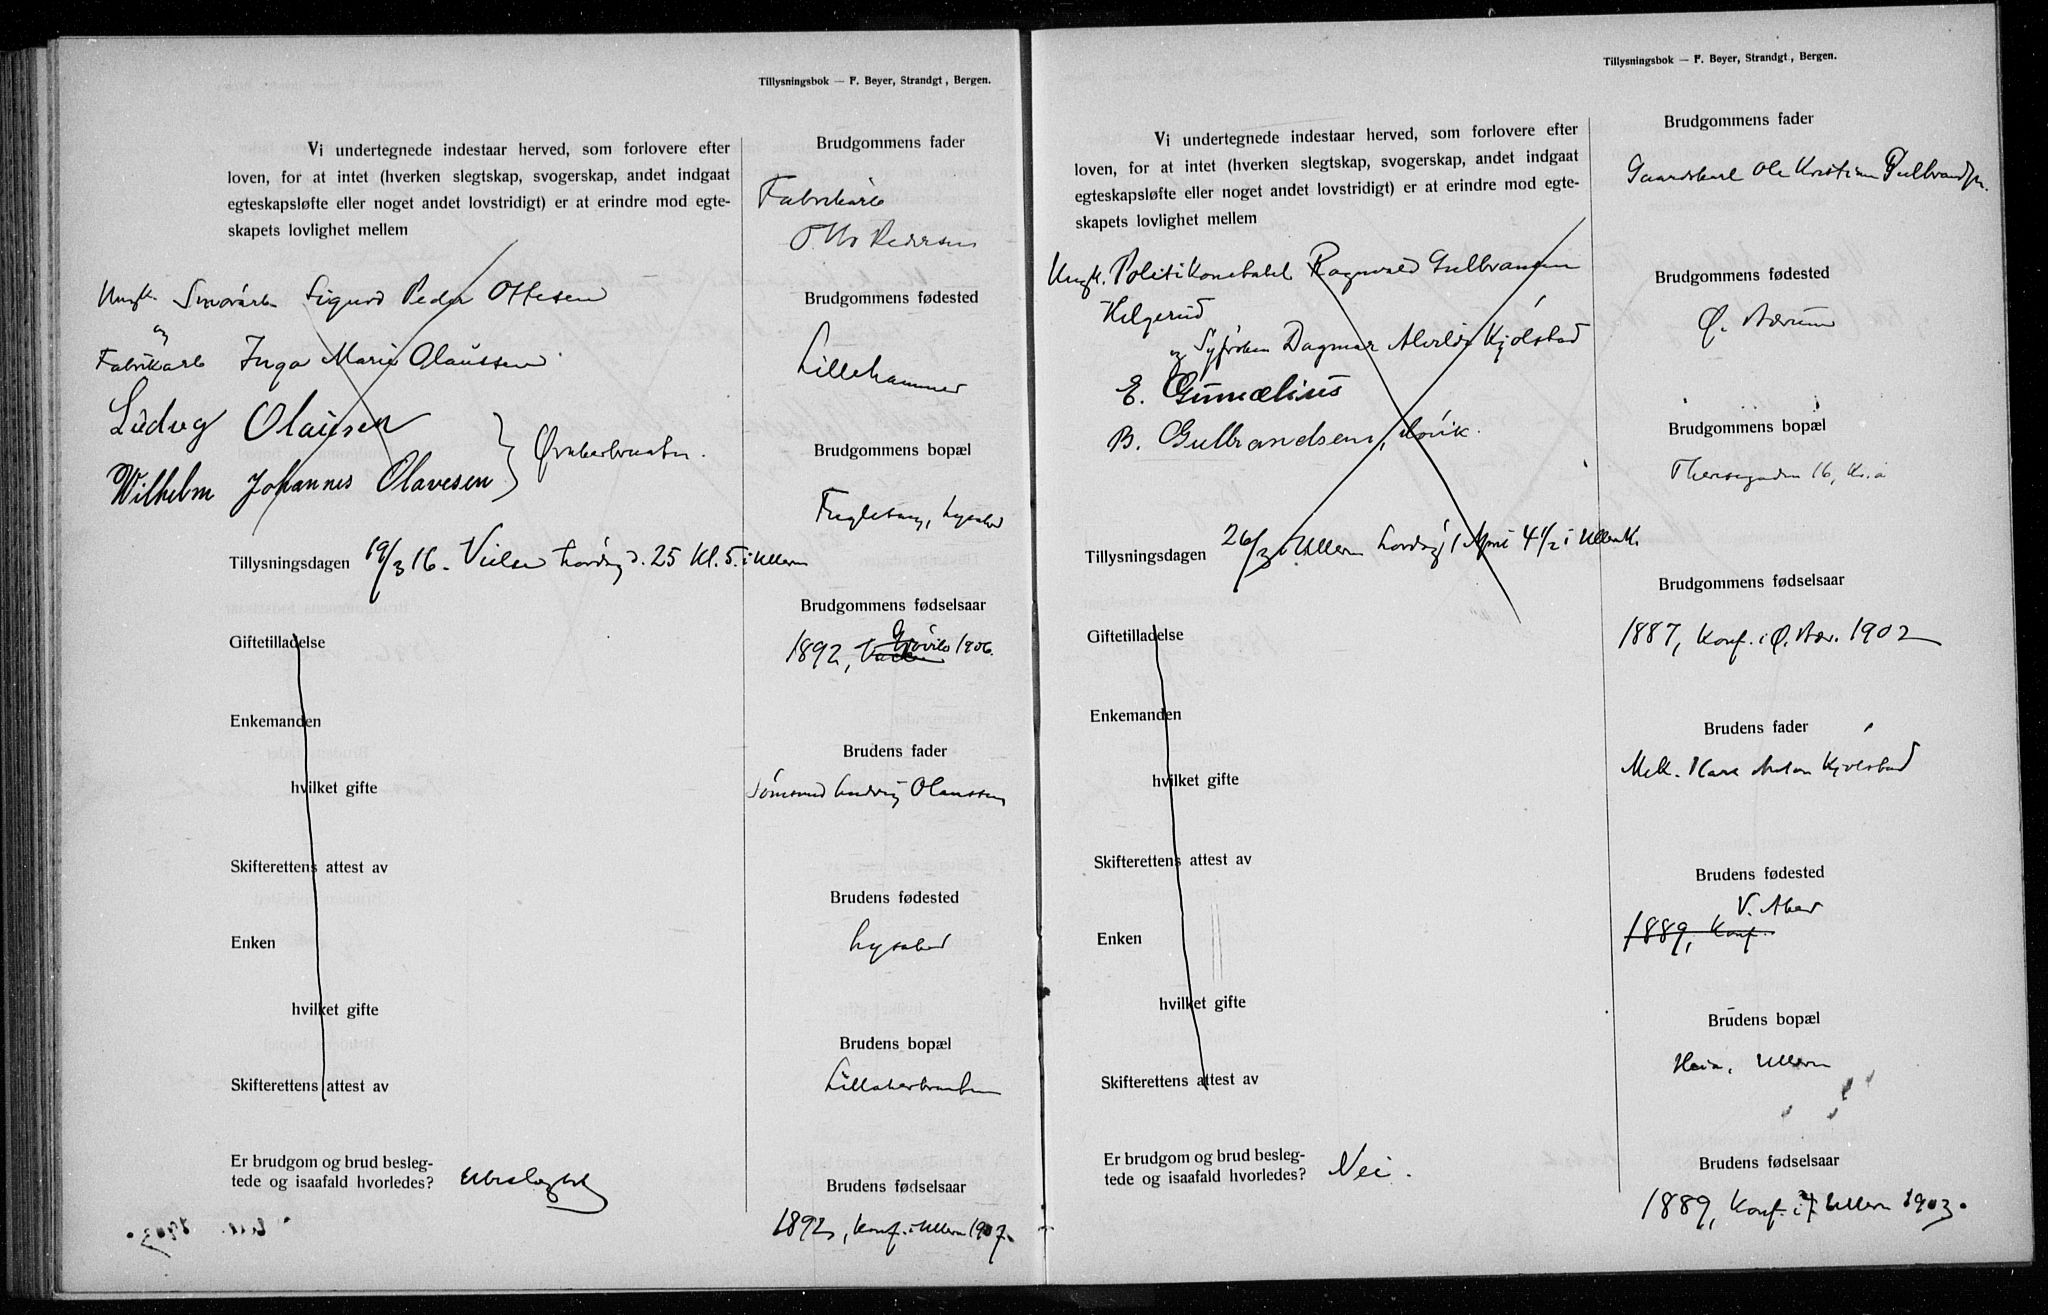 Tillysningsbok — F. Beyer, Strandgt, Bergen.
Vi undertegnede indestaar herved, som forlovere efter
loven, for at intet (hverken slegtskap, svogerskap, andet indgaat
egteskapsløfte eller noget andet lovstridigt) er at erindre mod egte-
skapets lovlighet mellem
Ungk. Smørarb. Sigurd Peder Ottesen
og
Fabrikarb Inga Marie Olaussen
Ludvg Olausen
Wilhelm Johannes Olavesen
Tillysningsdagen 19/3 16. Vielse Lørdag d. 25 Kl. 5. i Ullern
Giftetilladelse
Enkemanden
hvilket gifte
Skifterettens attest av
Enken
hvilket gifte
Skifterettens attest av
Er brudgom og brud besleg-
tede og isaafald hvorledes? Ubeslægtet
Brudgommens fader
Fabrikarb
Otto Pedersen
Brudgommens fødested
Lillehammer
Brudgommens bopæl
Fugleberg, Lysaker
Brudgommens fødselsaar
1892, Gjøvik 1906.
Brudens fader
Ludvig Olaussen
Brudens fødested
Lysaker
Brudens bopæl
Lillakerbruket
Brudens fødselsaar
1892, Konf. i Ullern 1907.
Tillysningsbok — F. Beyer, Strandgt, Bergen.
Vi undertegnede indestaar herved, som forlovere efter
loven, for at intet (hverken slegtskap, svogerskap, andet indgaat
egteskapsløfte eller noget andet lovstridigt) er at erindre mod egte-
skapets lovlighet mellem
Ungk. Politikonstabel Ragnvald Gulbransen
Helgerud
og Syfrøken Dagmar Alvilde Kjølstad
E. Gumælius
B. Gulbrandsen,
Tillysningsdagen 26/3 i Ullern Lørdag 1 April 4 1/2 i Ullern K.
Giftetilladelse
Enkemanden
hvilket gifte
Skifterettens attest av
Enken
hvilket gifte
Skifterettens attest av
Er brudgom og brud besleg-
tede og isaafald hvorledes? Nei.
Brudgommens fader
Gaardskarl Ole Kristian Gulbrandsen
Brudgommens fødested
Ø. Bærum
Brudgommens bopæl
Theresegaden 16, Kr.a
Brudgommens fødselsaar
1887, Konf. i Ø. Bær. 1902
Brudens fader
Karl Anton Kjølstad
Brudens fødested
V. Aker
1889, Konf.
Brudens bopæl
Heia, Ullern
Brudens fødselsaar
1889, Konf. i Ullern 1903.